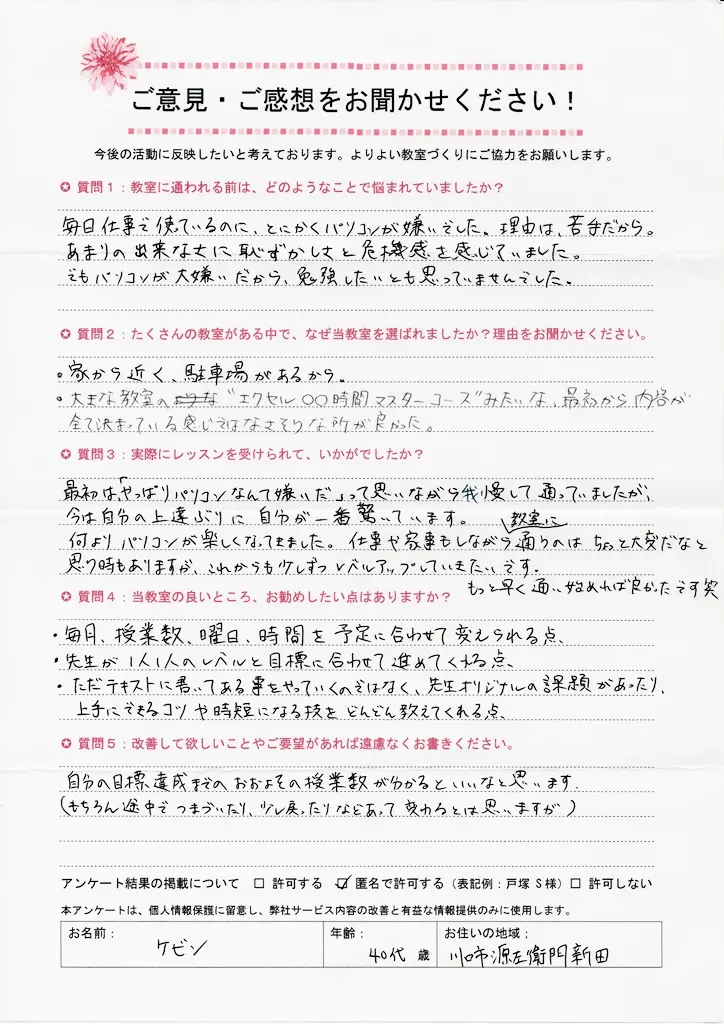 ご意見・ご感想をお聞かせください！
今後の活動に反映したいと考えております。よりよい教室づくりにご協力をお願いします。
✪ 質問１：教室に通われる前は、どのようなことで悩まれていましたか？
毎日仕事で使っているのに、とにかくパソコンが嫌いでした。理由は、苦手だから。
あまりの出来なさに恥ずかしさと危機感を感じていました。
でもパソコンが大嫌いだから、勉強したいとも思っていませんでした。
✪ 質問２：たくさんの教室がある中で、なぜ当教室を選ばれましたか？理由をお聞かせください。
・家から近く、駐車場があるから。
・大きな教室の"エクセル〇〇時間マスターコース"みたいな、最初から内容が
全て決まっている感じではなさそうな所が良かった。
✪ 質問３：実際にレッスンを受けられて、いかがでしたか？
最初は「やっぱりパソコンなんて嫌いだ」って思いながら我慢して通っていましたが、
今は自分の上達ぶりに自分が一番驚いています。
何よりパソコンが楽しくなってきました。仕事や家事もしながら教室に通うのはちょっと大変だなと
思う時もありますが、これからも少しずつレベルアップしていきたいです。
もっと早く通い始めれば良かったです笑
✪ 質問４：当教室の良いところ、お勧めしたい点はありますか？
・毎月、授業数、曜日、時間を予定に合わせて変えられる点、
・先生が1人1人のレベルと目標に合わせて進めてくれる点、
・ただテキストに書いてある事をやっていくのではなく、先生オリジナルの課題があったり、
上手にできるコツや時短になる技をどんどん教えてくれる点、
✪ 質問５：改善して欲しいことやご要望があれば遠慮なくお書きください。
自分の目標達成までのおおよその授業数が分かるといいなと思います.
(もちろん途中でつまづいたり、少し戻ったりなどあって変わるとは思いますが)
アンケート結果の掲載について □ 許可する ☑ 匿名で許可する（表記例：戸塚 S 様）□ 許可しない
本アンケートは、個人情報保護に留意し、弊社サービス内容の改善と有益な情報提供のみに使用します。
お名前： 年齢： お住いの地域：
ケビン 40代 歳 川口市源左衛門新田